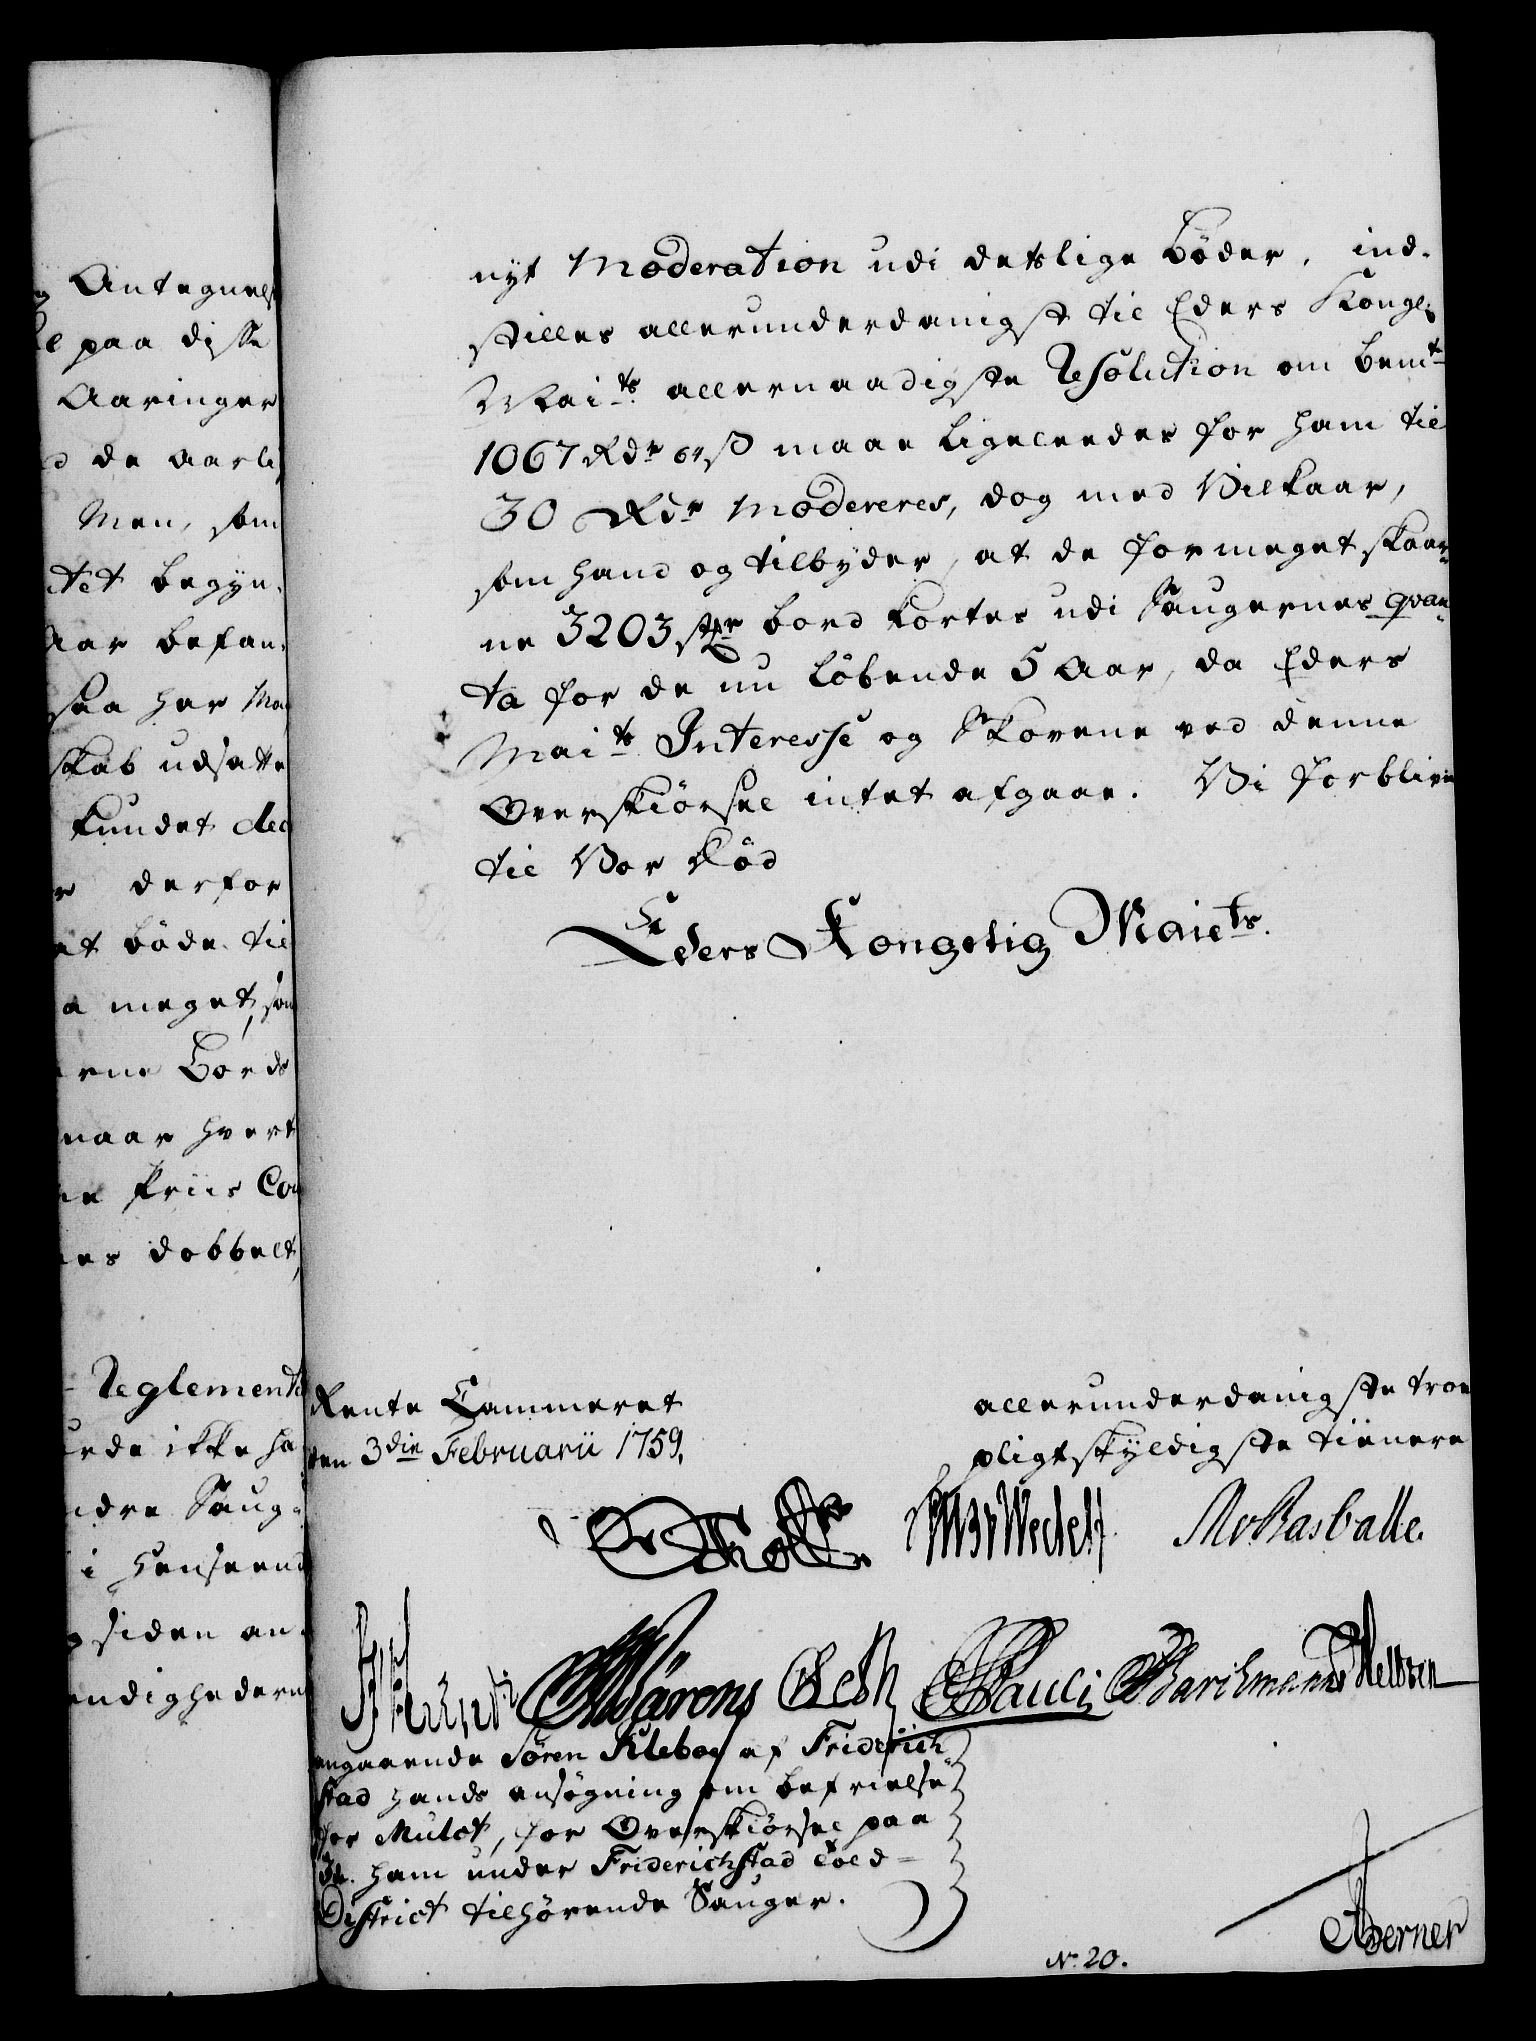 Antegnels
paa disse
Aaringer
de aarli
Men, som
tet begyn-
Aar befan-
saa har Ma
skab udsatte
kundet dec
derfor
at bøde til
meget, som
rne Bords
naar hvert
Priis Con
es dobbelt,
Reglements
rde ikke ha
ndre Saug-
i Henseend
siden an-
endighedern
nyt Moderation udi deslige Bøder, ind-
stilles allerunderdanigst til Eders Kongl:
Mai:ts allernaadigste Resolution om bem:te
1067 Rdr 64 s maae ligeleedes for ham til
30 Rdr Modereres, dog med Vilkaar,
som hand og tilbyder, at de formeget skaar-
ne 3203 st:r bord kortes udi Saugernes qvan-
ta for de nu løbende 5 Aar, da Eders
Mai:ts Interesse og Skovene ved denne
Overskiørsel intet afgaar. Vi forblive
til Vor Død
Eders Kongelig Maiets.
Rente Cammeret
den 3die Februarii 1759.
allerunderdanigste troe
pligtskyldigste tienere
Holst
Wedell
Rasballe.
Wärens Oeth Pauli Barchmann Hellven
angaaende Sören Klebog af Friderich
stad hands ansøgning om befrielse
for Mulct, for Overskiørsel paa
de ham under Friderichstad Told-
District tilhørende Sauger.
Aberner
No. 20.